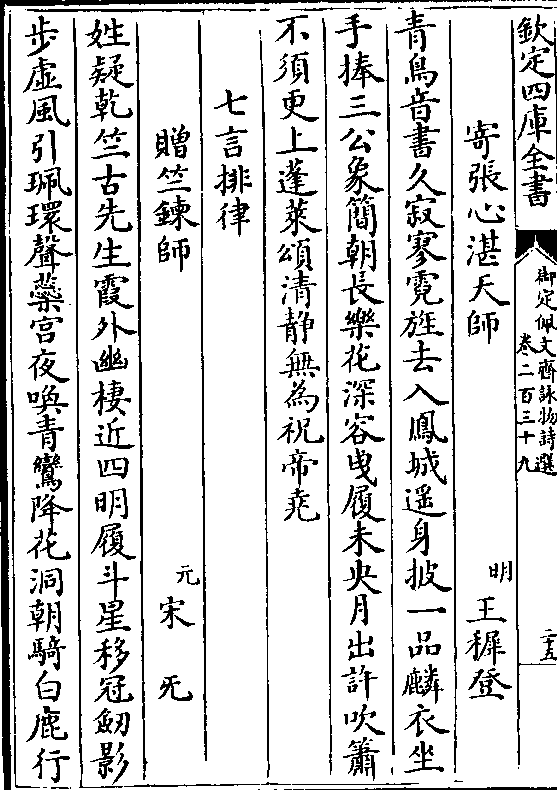 欽定四庫全書
御定佩文齋詠物詩選
卷二百三十九
二十五
寄張心湛天師
明 王穉登
青鳥音書久寂寥霓旌去入鳳城遥身披一品麟衣坐
手捧三公象簡朝長樂花深容曳履未央月出許吹簫
不須更上蓬萊頌清静無為祝帝堯
七言排律
贈竺鍊師
元 宋 旡
姓疑乾竺古先生霞外幽棲近四明履斗星移冠劒影
步虚風引珮環聲蘂宫夜喚青鸞降花洞朝騎白鹿行